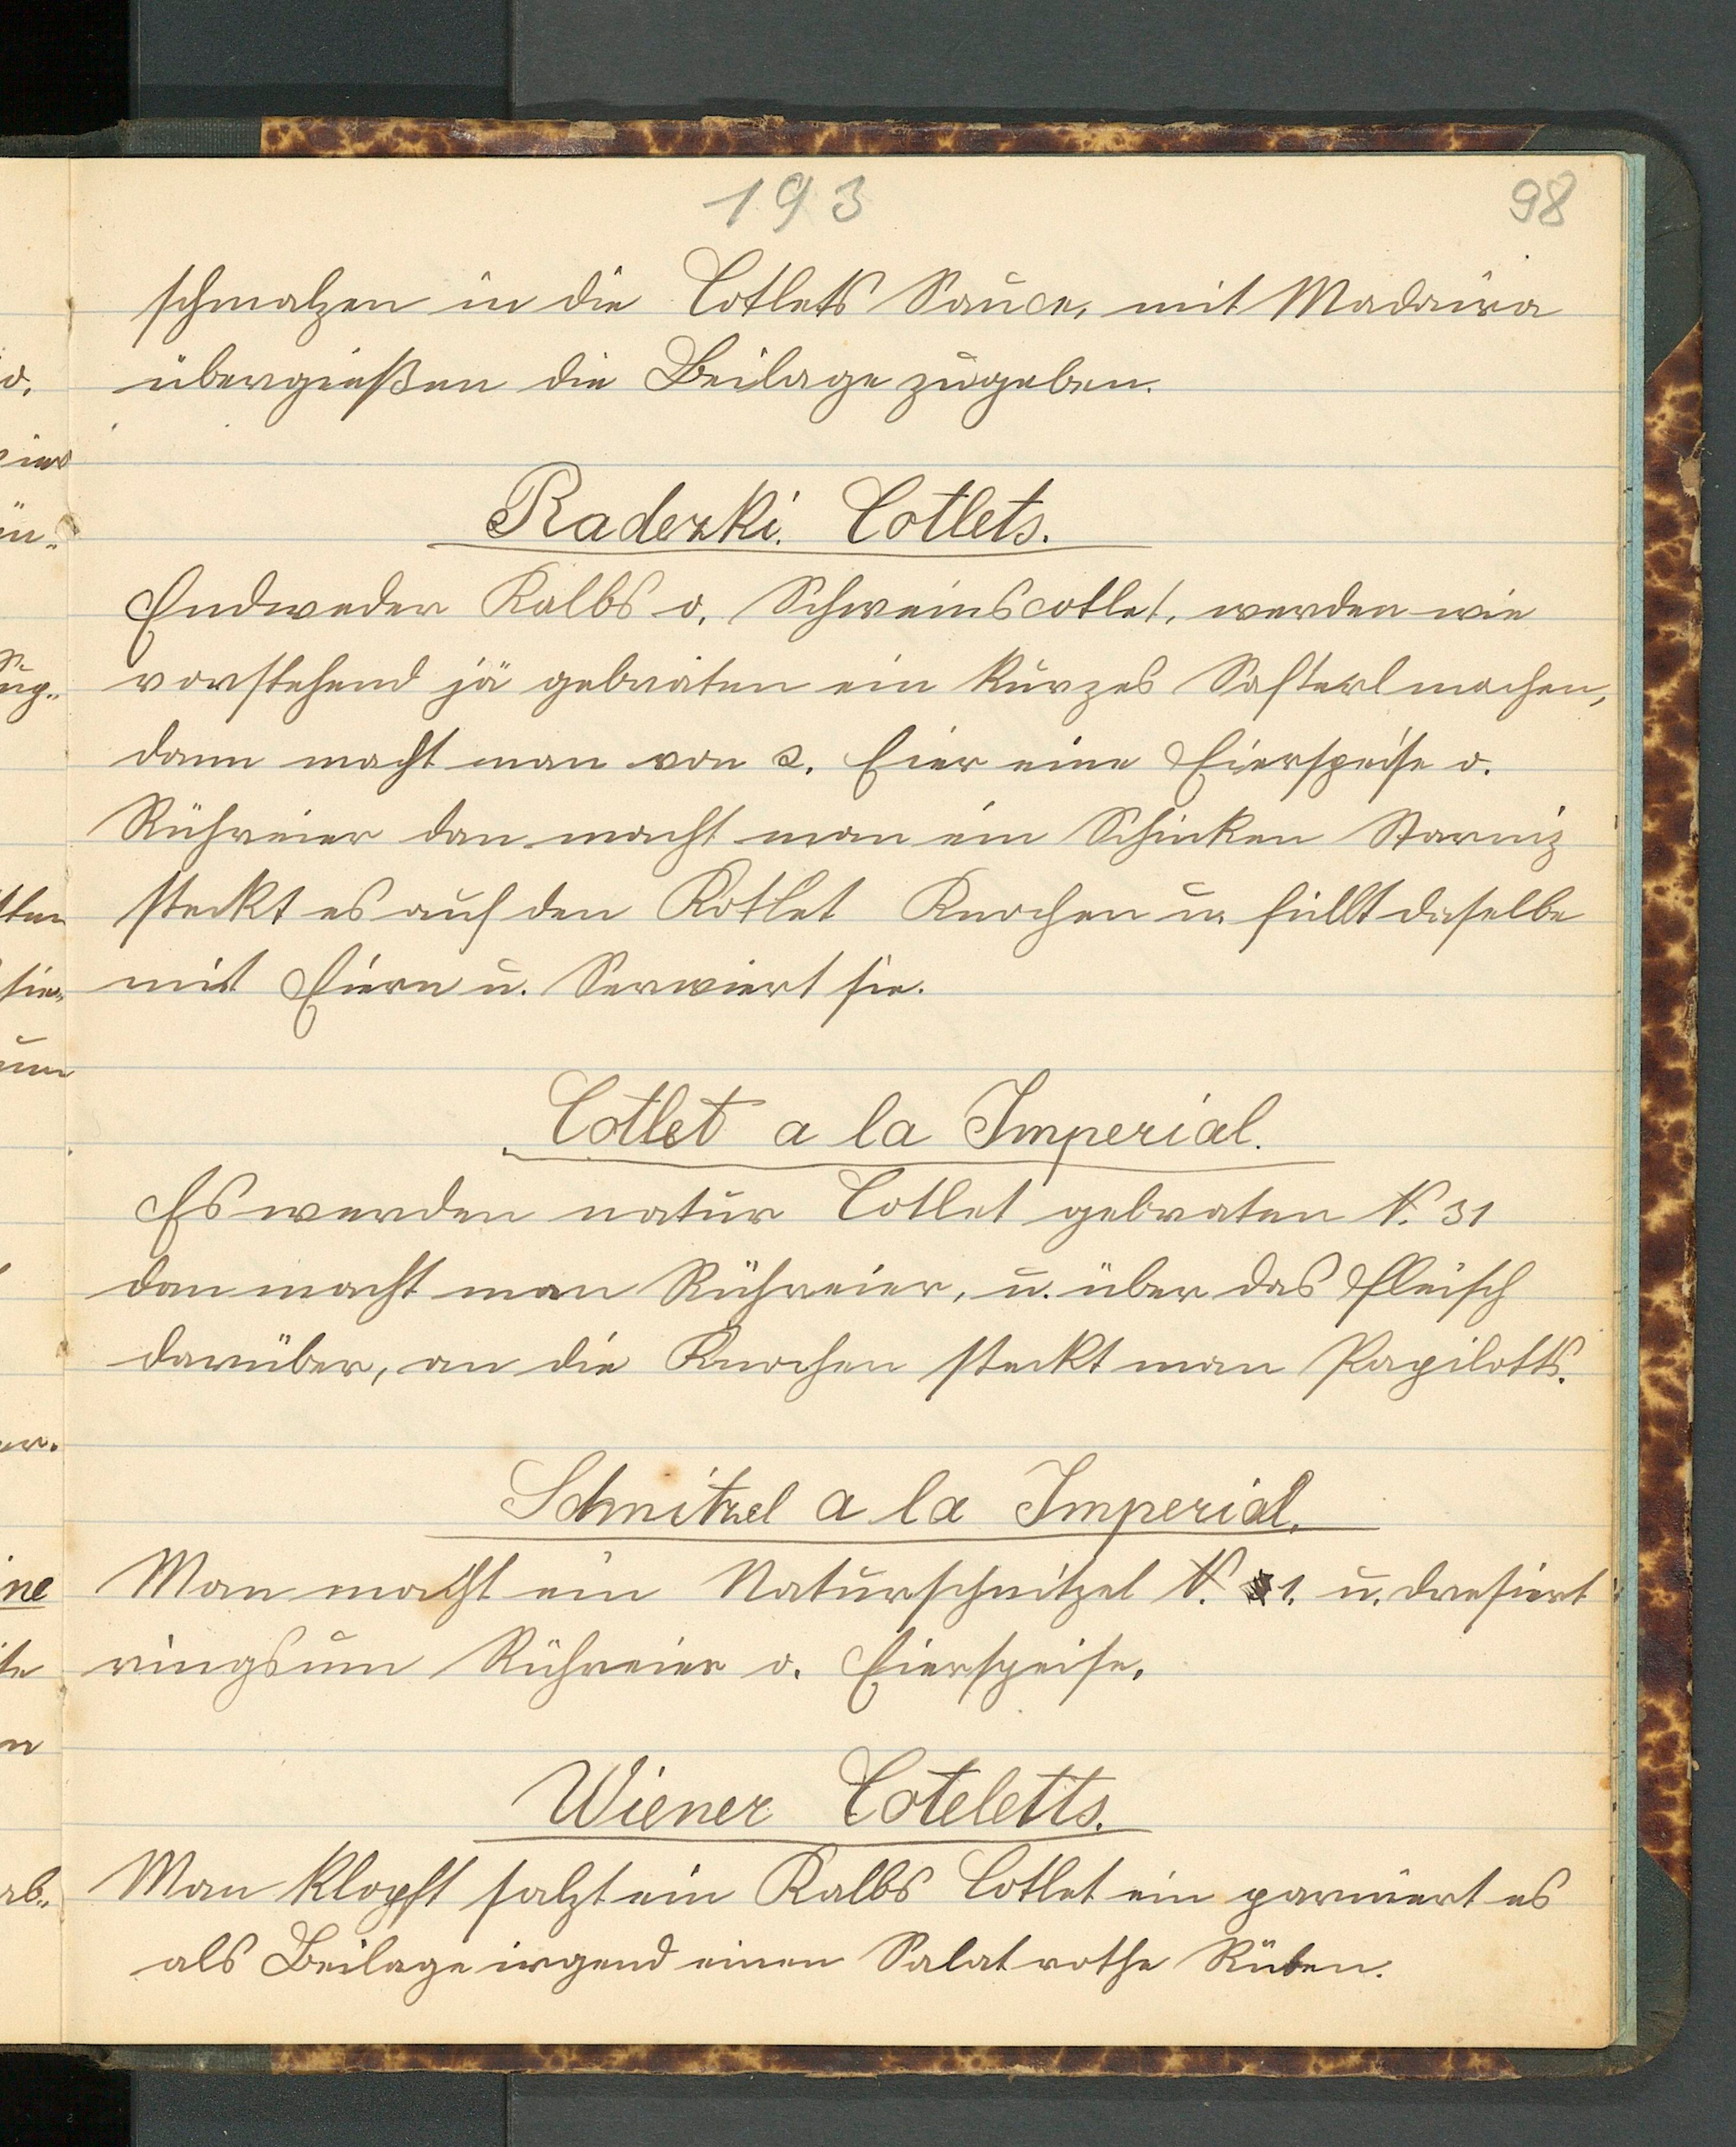 193
98
schmalzen in die Cotlets Sauce, mit Madaira
übergießen die Beilage zugeben.
Radezki. Cotlets.
Endweder Kalbs o. Schweinscotlet, werden wie
vorstehend jä gebraten ein kurzes Safterl machen,
dann macht man von 2. Eier eine Eierspeise o.
Rühreier dan macht man ein Schinken Starniz
steckt es auf den Kotlet Knochen u. füllt daselbe
mit Eiern u. Serwiert sie.
Cotlet a la Imperial.
Es werden natur Cotlet gebraten N. 31
dan macht man Rühreier, u. über das Fleisch
darüber, an die Knochen steckt man Papilotts.
Schnitzel a la Imperial.
Man macht ein Naturschnitzel N. 1. u. dresiert
ringsum Rühreier o. Eierspeise.
Wiener Coteletts.
Man klopft salzt ein Kalbs Cotlet ein paniert es
als Beilage irgend einen Salat rothe Rüben.